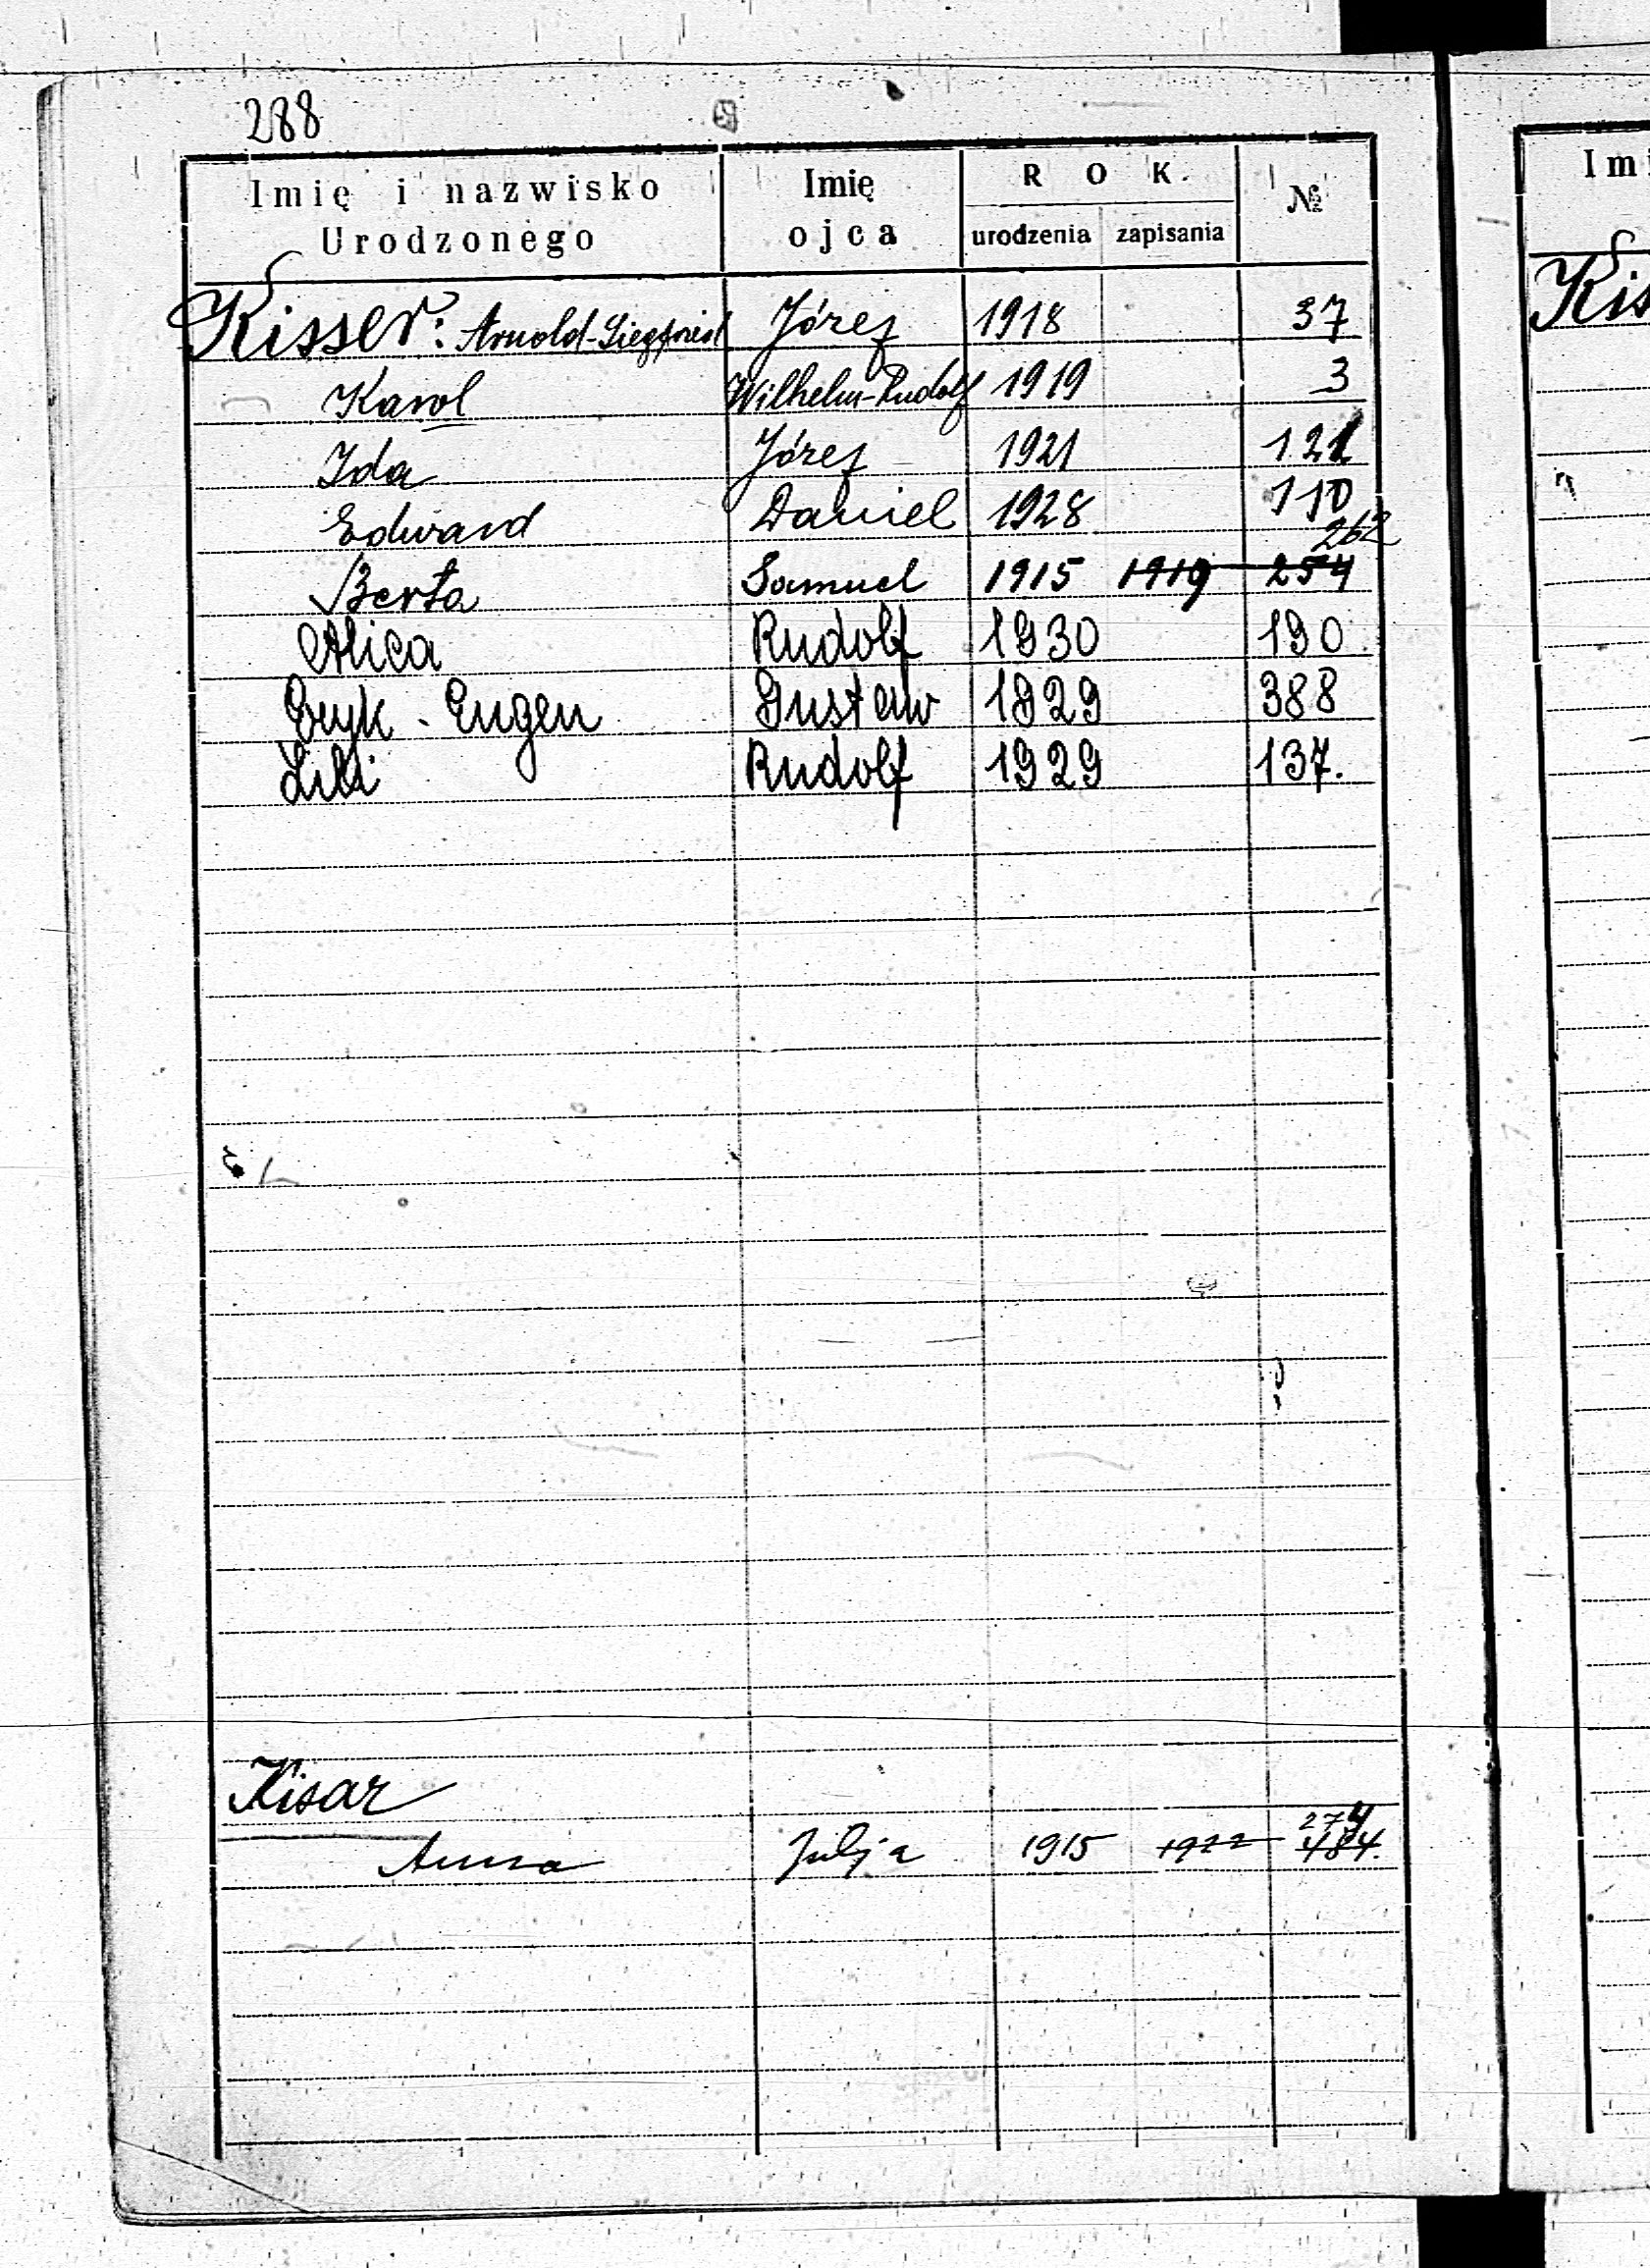 288
Imię i nazwisko Urodzonego
Imię ojca
ROK.
urodzenia zapisania
№
Kisser: Arnold-Siegfried Józef 1918 37
Karol Wilhelm-Rudolf 1919 3
Ida Józef 1921 121
Edward Daniel 1928 110
262
Berta Samuel 1915 1919 254
Alica Rudolf 1930 190
Eryk - Eugen Gustaw 1929 388
Lili Rudolf 1929 137.
Kisar
274
Anna Julja 1915 1922 484.
Imi
Kis